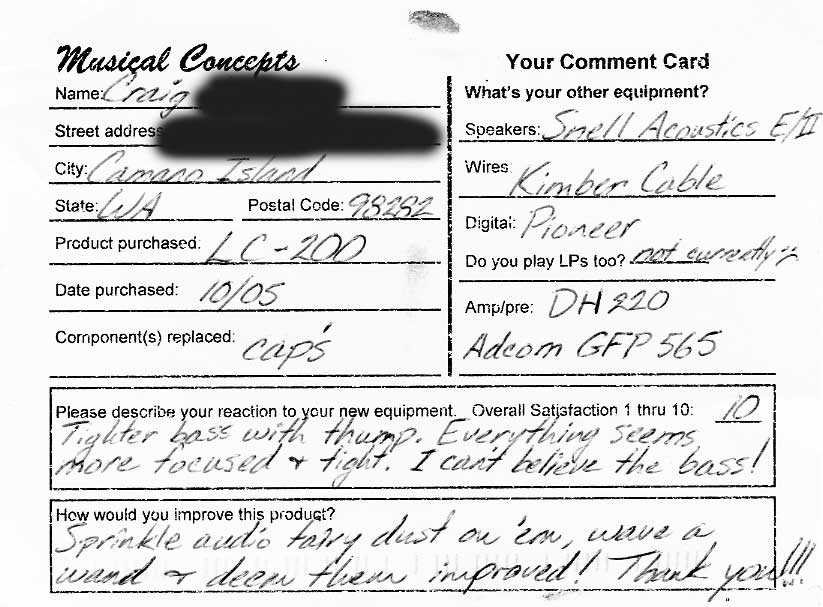 Musical Concepts
Name: Craig
Street address
City: Camano Island
State: WA Postal Code: 98282
Product purchased: LC-200
Date purchased: 10/05
Component(s) replaced: cap's
Your Comment Card
What's your other equipment?
Speakers: Snell Acoustics E/II
Wires: Kimber Cable
Digital: Pioneer
Do you play LPs too? not currently
Amp/pre: DH 220
Adcom GFP 565
Please describe your reaction to your new equipment. Overall Satisfaction 1 thru 10: 10
Tighter bass with thump. Everything seems
more focused & tight. I can't believe the bass!
How would you improve this product?
Sprinkle audio fairy dust on 'em, wave a
wand & deem them improved! Thank you!!!